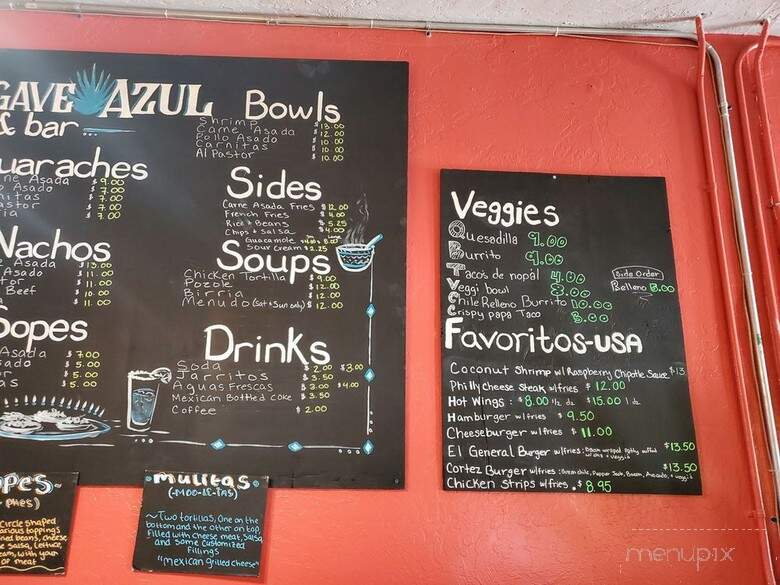 GAVE AZUL
& bar
uaraches
ne Asada $ 9.00
o Asado $ 7.00
nitas $ 7.00
astor $ 7.00
ria $ 7.00
Nachos
Asada $13.00
Asado $ 11.00
tor $ 11.00
Beef $ 10.00
$ 11.00
Sopes
Asada $ 7.00
sado $ 5.00
ar $ 5.00
as $ 5.00
Bowls
Shrimp $ 13.00
Carne Asada $ 12.00
Pollo Asado $ 10.00
Carnitas $ 10.00
Al Pastor $ 10.00
Sides
Carne Asada Fries $ 12.00
French Fries $ 4.00
Rice & Beans $ 5.25
Chips & Salsa $ 4.00
Guacamole
Sour Cream $ 2.25
Soups
Chicken Tortilla $ 9.00
Pozole $ 12.00
Birria $ 12.00
Menudo (Sat & Sun only) $ 12.00
Drinks
Soda $ 2.00 $3.00
Jarritos $ 3.50
Aguas Frescas $ 3.00 $4.00
Mexican Bottled Coke $ 3.50
Coffee $ 2.00
Veggies
Quesadilla 9.00
Burrito 9.00
Tacos de nopal 4.00
Veggi bowl 8.00
Chile Relleno Burrito 10.00
Crispy papa Taco 8.00
Side Order
Relleno 8.00
Favoritos-USA
Coconut Shrimp w/ Raspberry Chipotle Sauce $13
Philly cheese Steak w/fries $ 12.00
Hot Wings : $ 8.00 1/2 dz $15.00 1 dz
Hamburger w/fries $ 9.50
Cheeseburger w/fries $ 11.00
El General Burger w/fries: Bacon wrapped patty stuffed $13.50
Cortez Burger w/fries: Green chile, Pepper Jack, Bacon, Avocado, + veggis $13.50
Chicken Strips w/fries $ 8.95
opes~
Circle shaped
arious toppings
ried beans, cheese,
e salsa, lettuce,
eam, with your
of meat
~Mulitas~
(-MOO-LE-TAS)
~Two tortillas, one on the
bottom and the other on top,
filled with cheese meat, salsa
and some customized
fillings
"Mexican grilled cheese"
menupix